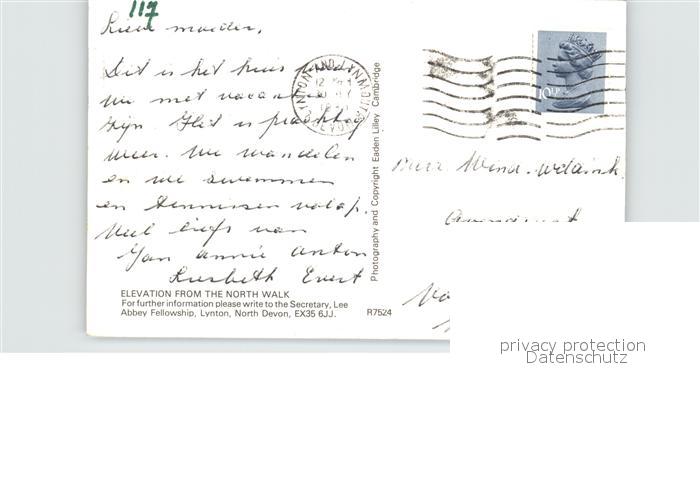 117
Lieve moeder,
Dit is het huis
we met vacan
zijn. Het is prachtig
weer. We wandelen
en we swemmen
en tennissen volop.
Veel liefs van
Jan Annie Anton
Liesbeth Evert
ELEVATION FROM THE NORTH WALK
For further information please write to the Secretary, Lee
Abbey Fellowship, Lynton, North Devon, EX35 6JJ.
R7524
Photography and Copyright Eaden Lilley Cambridge
LYNTON AND LYNMOUTH
DEVON
10½P
privacy protection
Datenschutz